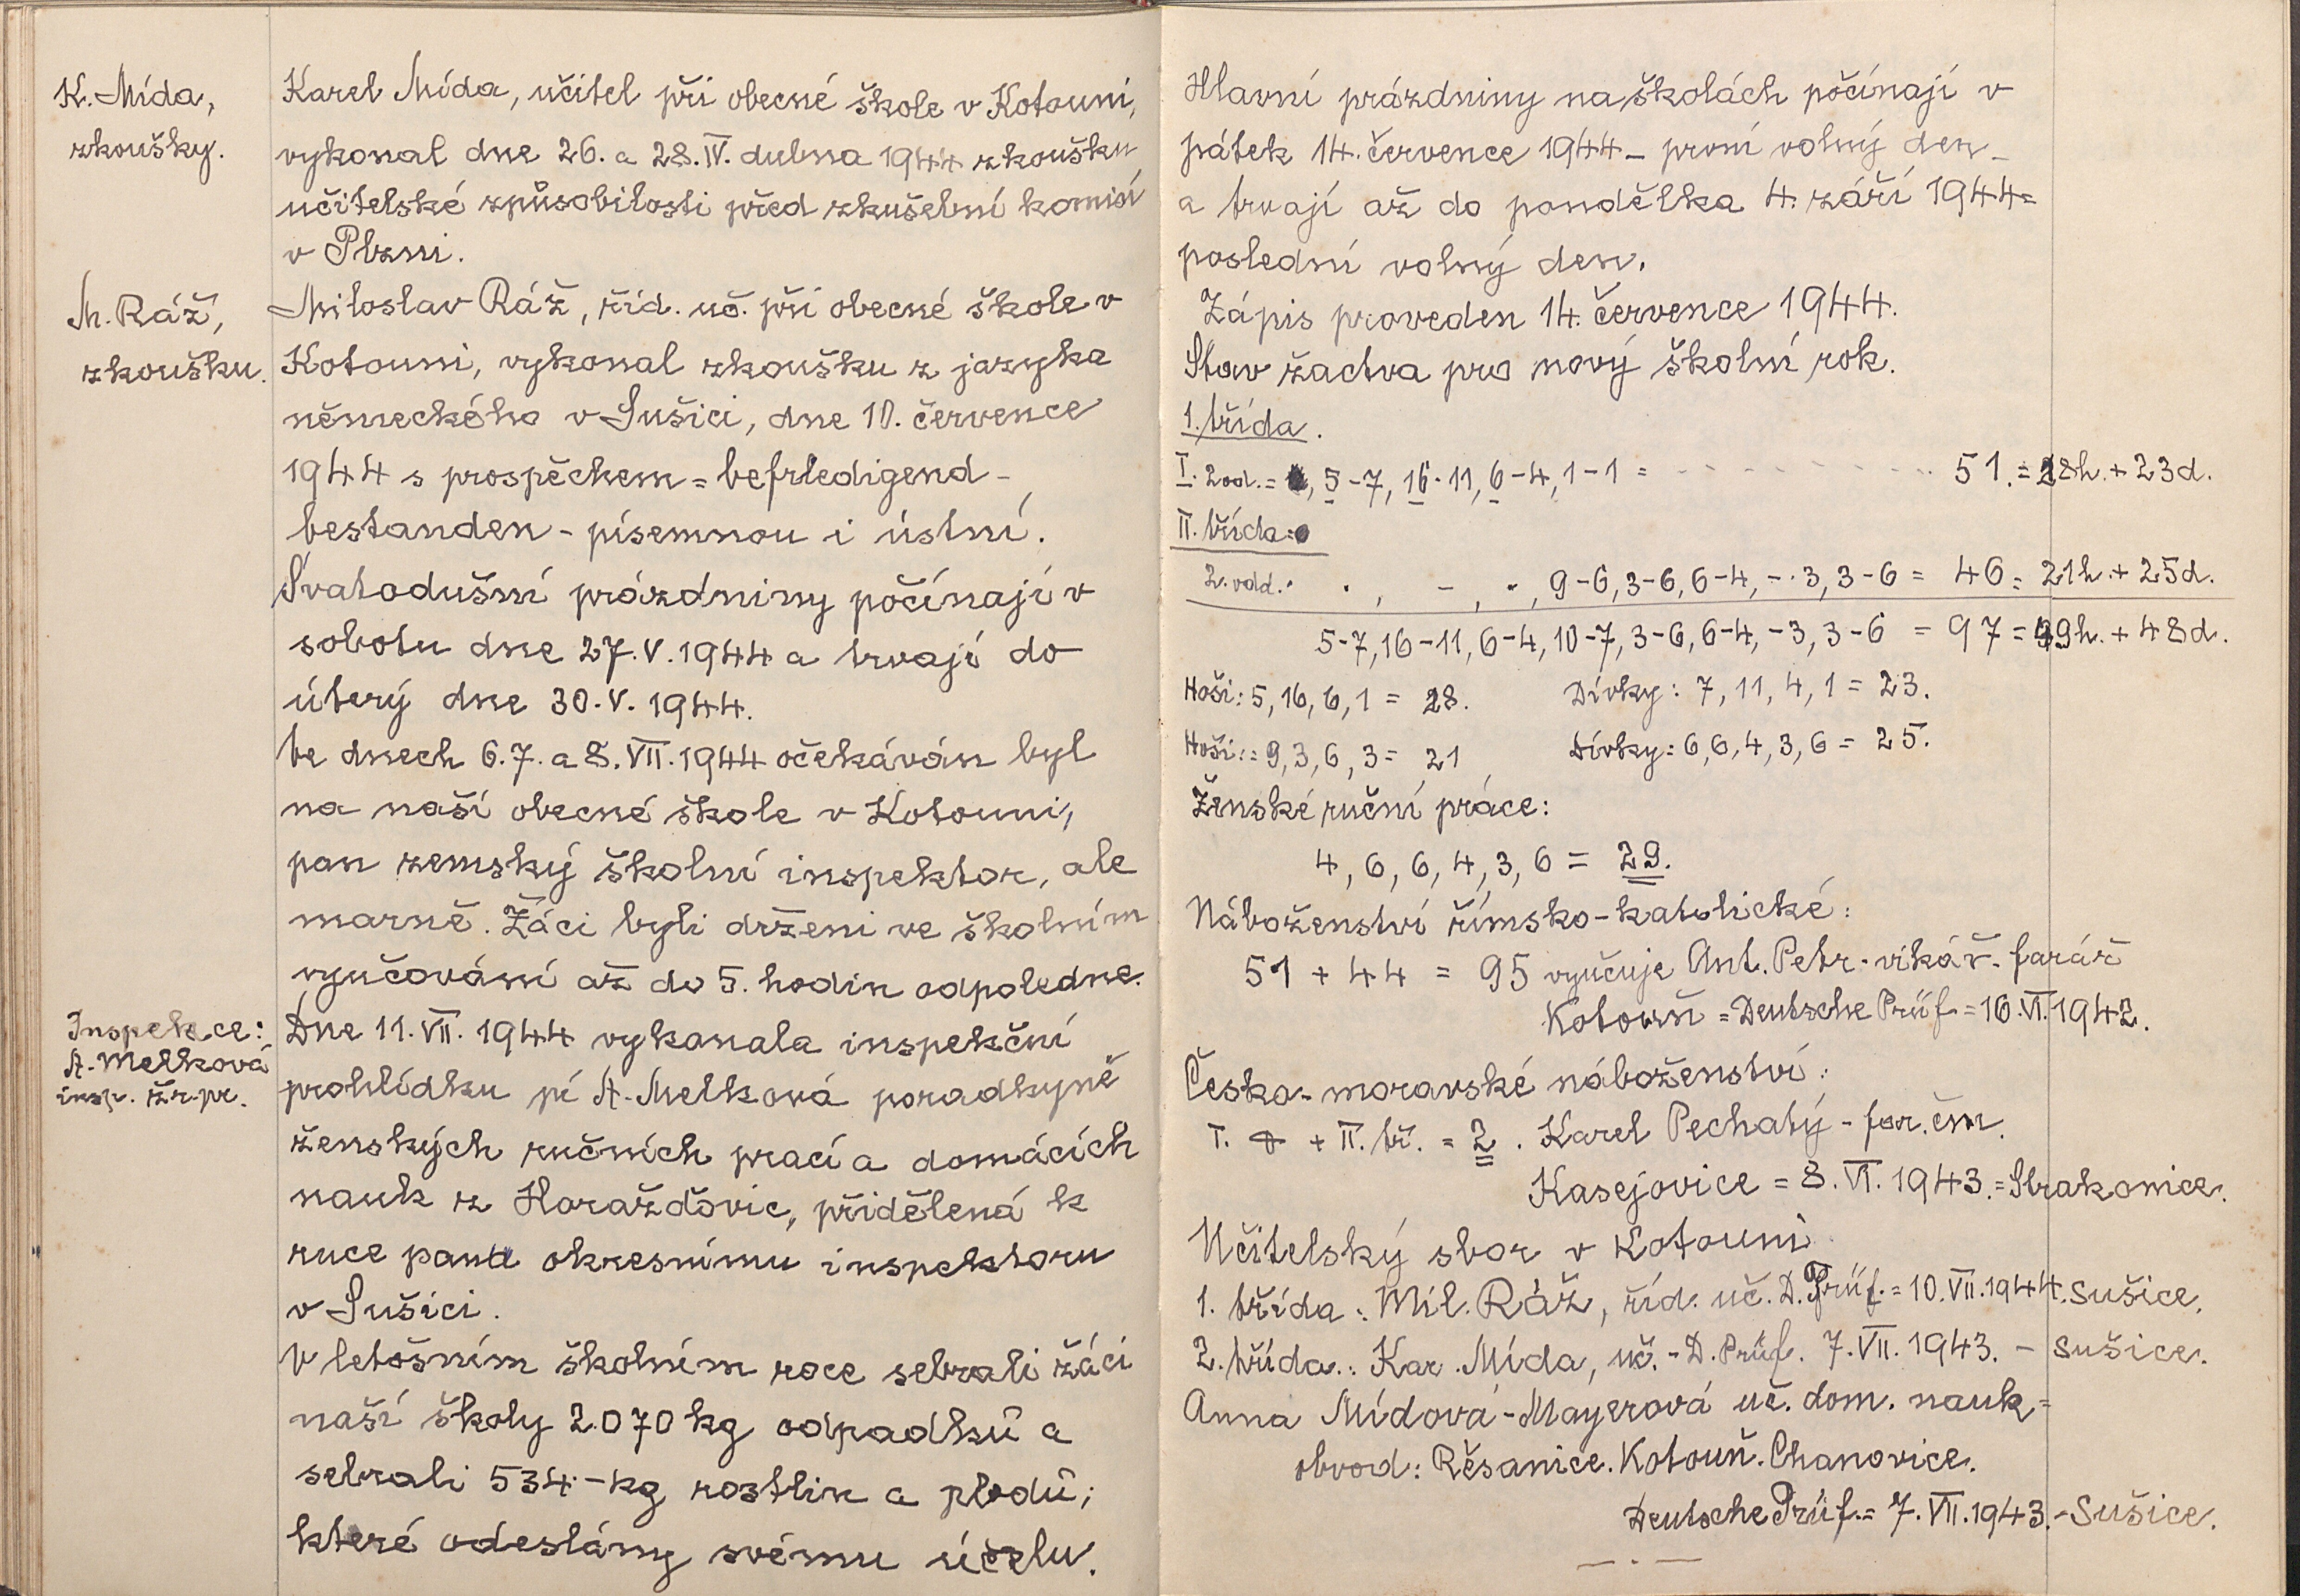 K. Mída,
zkoušky.
Karel Mída, učitel při obecné škole v Kotouni,
vykonal dne 26. a 28. IV. dubna 1944 zkoušku
učitelské způsobilosti před zkušební komisí
v Plzni.
M. Ráž,
zkoušku.
Miloslav Ráž, říd. uč. při obecné škole v
Kotouni, vykonal zkoušku z jazyka
německého v Sušici, dne 10. července
1944 s prospěchem = befriedigend -
bestanden - písemnou i ústní.
Svatodušní prázdniny počínají v
sobotu dne 27. V. 1944 a trvají do
úterý dne 30. V. 1944.
Ve dnech 6. 7. a 8. VII. 1944 očekáván byl
na naší obecné škole v Kotouni,
pan zemský školní inspektor, ale
marně. Žáci byli drženi ve školním
vyučování až do 5. hodin odpoledne.
Inspekce:
A. Melková
insp. žr. pr.
Dne 11. VII. 1944 vykonala inspekční
prohlídku pí A. Melková poradkyně
ženských ručních prací a domácích
nauk z Horažďovic, přidělená k
ruce panu okresnímu inspektoru
v Sušici.
V letošním školním roce sebrali žáci
naší školy 2.070 kg odpadků a
sebrali 534.- kg rostlin a plodů;
které odeslány svému účelu.
Hlavní prázdniny na školách počínají v
pátek 14. července 1944 - první volný den -
a trvají až do pondělka 4. září 1944 =
poslední volný den.
Zápis proveden 14. července 1944.
Stav žactva pro nový školní rok.
1. třída.
I. 2 od. = , 5-7, 16-11, 6-4, 1-1 = - - - - - - - - - 51. = 28h. + 23d.
II. třída:
2. odd. . . , - , - , 9-6, 3-6, 6-4, -. 3, 3-6 = 46 = 21h. + 25d.
5-7, 16-11, 6-4, 10-7, 3-6, 6-4, -3, 3-6 = 97 = 49h. + 48d.
Hoši: 5, 16, 6, 1 = 28. Dívky: 7, 11, 4, 1 = 23.
Hoši: = 9, 3, 6, 3 = 21 Dívky: 6, 6, 4, 3, 6 = 25.
Ženské ruční práce:
4, 6, 6, 4, 3, 6 = 29.
Náboženství římsko-katolické:
51 + 44 = 95 vyučuje Ant. Petr - vikář. farář
Kotouň = Deutsche Prüf. = 16. VI. 1942.
Česko-moravské náboženství:
I. + II. tř. = 2. Karel Pechatý - far. čm.
Kasejovice = 8. VI. 1943. = Strakonice.
Učitelský sbor v Kotouni
1. třída: Mil. Ráž, říd. uč. D. Prüf. = 10. VII. 1944. Sušice.
2. třída.: Kar. Mída, uč. - D. Prüf. 7. VII. 1943. - Sušice.
Anna Mídová-Mayerová uč. dom. nauk =
obvod: Řesanice. Kotouň. Chanovice.
Deutsche Prüf. = 7. VII. 1943. - Sušice.
— . —